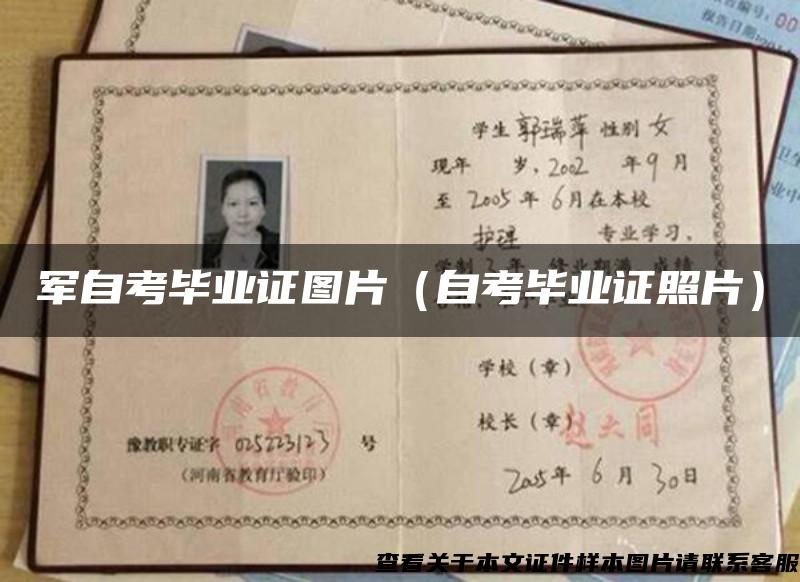 告编号：00
报告日期：201
学生 郭瑞萍 性别 女
现年 岁，2002 年 9 月
至 2005 年 6 月在本校
护理 专业学习，
学制 3 年 修业期满 成绩
军自考毕业证图片（自考毕业证照片）
学校（章）
校长（章）赵大同
豫教职专证字 025223123 号
（河南省教育厅验印）
2005 年 6 月 30 日
河南省教育厅
查看关于本文证件样本图片请联系客服